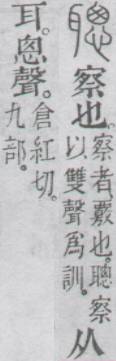 聰察也。察者覈也。聰察以雙聲爲訓。从
耳。悤聲。倉紅切。九部。